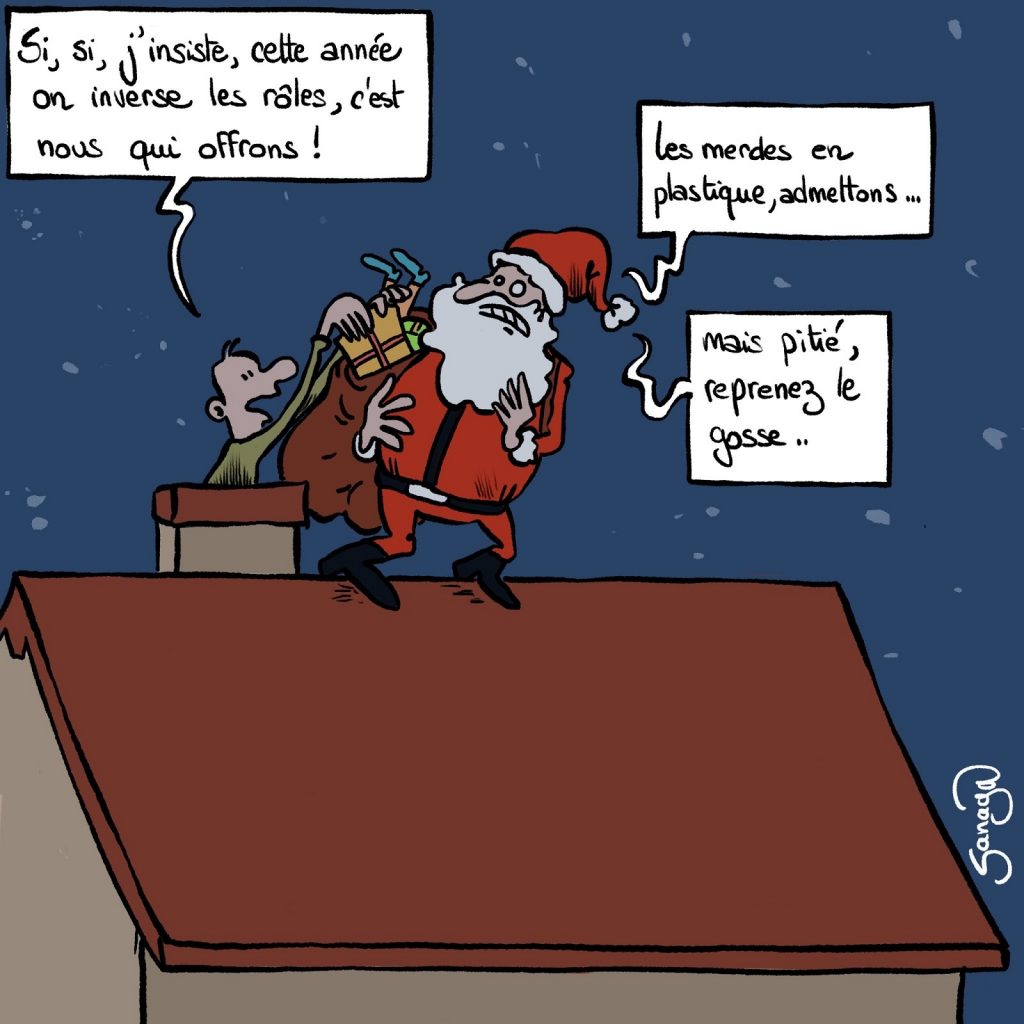 Si, si, j'insiste, cette année
on inverse les rôles, c'est
nous qui offrons !
Les merdes en
plastique, admettons...
mais pitié,
reprenez le
gosse..
Sanaga